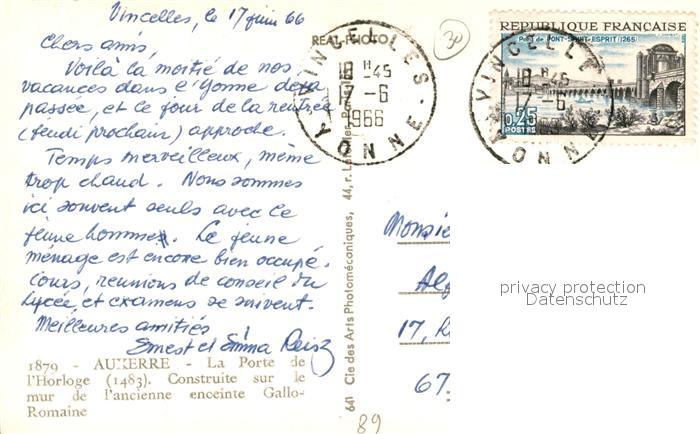 Vincelles, le 17 juin 66
Chers amis,
Voilà la moitié de nos
vacances dans l'Yonne déjà
passée, et le jour de la rentrée
(jeudi prochain) approche.
Temps merveilleux, même
trop chaud. Nous sommes
ici souvent seuls avec le
jeune homme. Le jeune
ménage est encore bien occupé.
Cours, reunions de conseil du
Lycée et examens se suivent.
Meilleures amitiés
Ernest et Emma
1879 - AUXERRE - La Porte de
l'Horloge (1483). Construite sur le
mur de l'ancienne enceinte Gallo-
Romaine
REAL-PHOTO
641 Cie des Arts Photomécaniques, 44, r.
VINCELLES
18 H 45
17-6
1966
YONNE
30
REPUBLIQUE FRANÇAISE
Pont de PONT-SAINT-ESPRIT (1265)
0,25
POSTES
VINCELLE
18 H 45
17-6
YONN
Monsie
17, R
67
privacy protection
Datenschutz
89